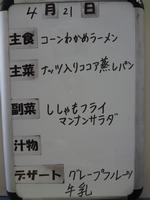 4月21日
主食 コーンわかめラーメン
主菜 ナッツ入りココア蒸しパン
副菜 ししゃもフライ
マンナンサラダ
汁物
デザート グレープフルーツ
牛乳